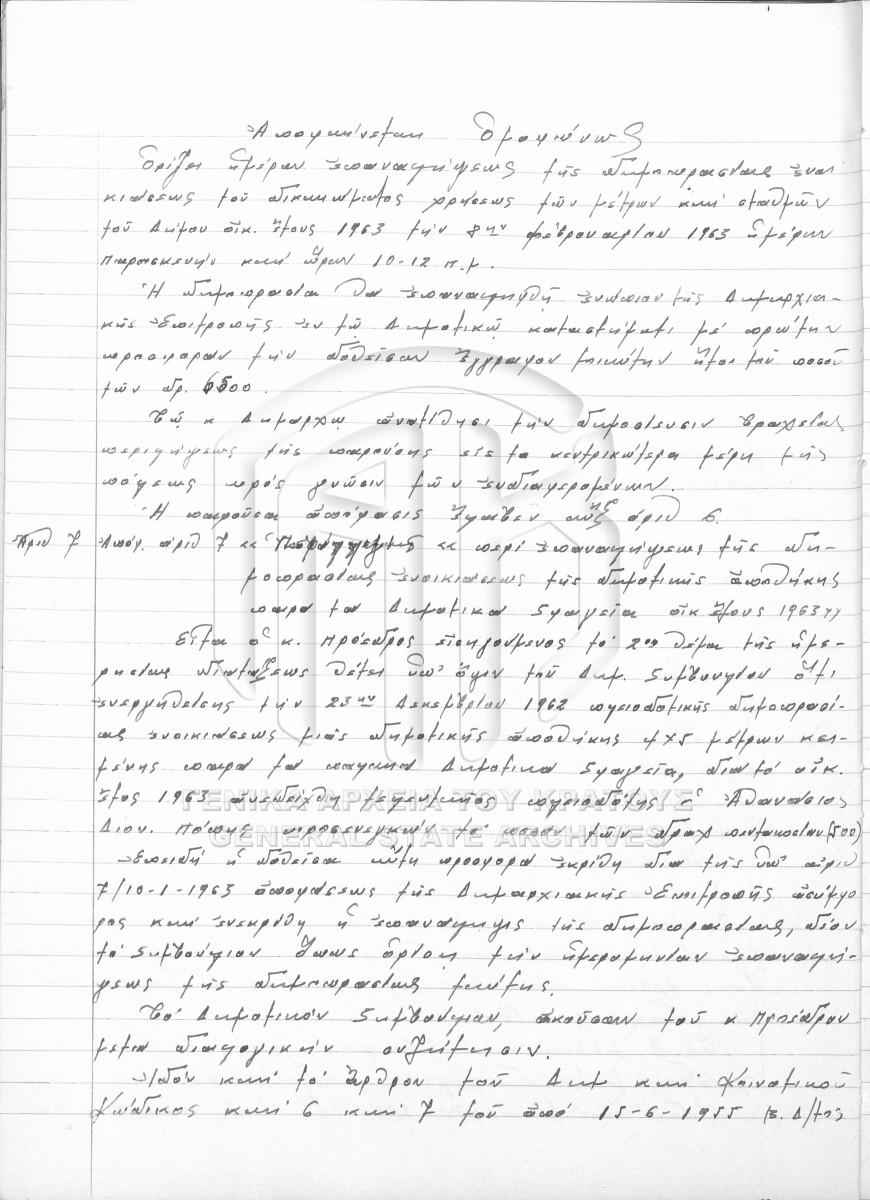 Ἀποφαίνεται Ὁμοφώνως
Ὁρίζει ἡμέραν ἐπαναλήψεως τῆς δημοπρασίας ἐνοι
κιάσεως τοῦ δικαιώματος χρήσεως τῶν μέτρων καί σταθμῶν
τοῦ Δήμου οἰκ. ἔτους 1963 τήν 8ην Φεβρουαρίου 1963 ἡμέραν
Παρασκευήν καί ὥραν 10-12 π.μ.
Ἡ δημοπρασία θά ἐπαναληφθῇ ἐνώπιον τῆς Δημαρχια-
κῆς Ἐπιτροπῆς ἐν τῷ Δημοτικῷ καταστήματι μέ πρώτην
προσφοράν τήν δοθεῖσαν ἔγγραφον τοιαύτην ἤτοι τοῦ ποσοῦ
τῶν δρ. 6500.
Τῷ κ Δημάρχῳ ἀνατίθησι τήν δημοσίευσιν βραχείας
περιλήψεως τῆς παρούσης εἰς τά κεντρικώτερα μέρη τῆς
πόλεως πρός γνῶσιν τῶν ἐνδιαφερομένων.
Ἡ παροῦσα ἀπόφασις ἔλαβεν αὔξ ἀριθ 6.
Ἀριθ 7 Ἀπόφ. ἀριθ 7 << περί ἐπαναλήψεως τῆς δη-
μοπρασίας ἐνοικιάσεως τῆς δημοτικῆς ἀποθήκης
παρά τά Δημοτικά Σφαγεῖα οἰκ ἔτους 1963>>
Εἶτα ὁ κ. Πρόεδρος εἰσηγούμενος τό 2ον θέμα τῆς ἡμε-
ρησίας διατάξεως θέτει ὑπ' ὄψιν τοῦ Δημ. Συμβουλίου ὅτι
ἐνεργηθείσης τήν 23ην Δεκεμβρίου 1962 πλειοδοτικῆς δημοπρασί-
ας ἐνοικιάσεως μιᾶς δημοτικῆς ἀποθήκης 4Χ5 μέτρων κει-
μένης παρά τά παλαιά Δημοτικά Σφαγεῖα, διά τό οἰκ.
ἔτος 1963 ἀνεδείχθη τελευταῖος πλειοδότης ὁ Ἀθανάσιος
Διον. προσενεγκών τό ποσόν τῶν δραχ πεντακοσίων (500)
Ἐπειδή ἡ δοθεῖσα αὕτη προσφορά ἐκρίθη διά τῆς ὑπ' ἀριθ
7/10-1-1963 ἀποφάσεως τῆς Δημαρχιακῆς Ἐπιτροπῆς ἀσύμφο
ρος καί ἐνεκρίθη ἡ ἐπανάληψις τῆς δημοπρασίας, δέον
τό Συμβούλιον ὅπως ὁρίσῃ τήν ἡμερομηνίαν ἐπαναλή-
ψεως τῆς δημοπρασίας ταύτης.
Τό Δημοτικόν Συμβούλιον, ἀκοῦσαν τοῦ κ Προέδρου
μετά διαλογικήν συζήτησιν.
Ἰδόν καί τό ἄρθρον τοῦ Δημ καί Κοινοτικοῦ
Κώδικος καί 6 καί 7 τοῦ ἀπό 15-6-1955 Β. Δ/τος
ΓΕΝΙΚΑ ΑΡΧΕΙΑ ΤΟΥ ΚΡΑΤΟΥΣ
GENERAL STATE ARCHIVES